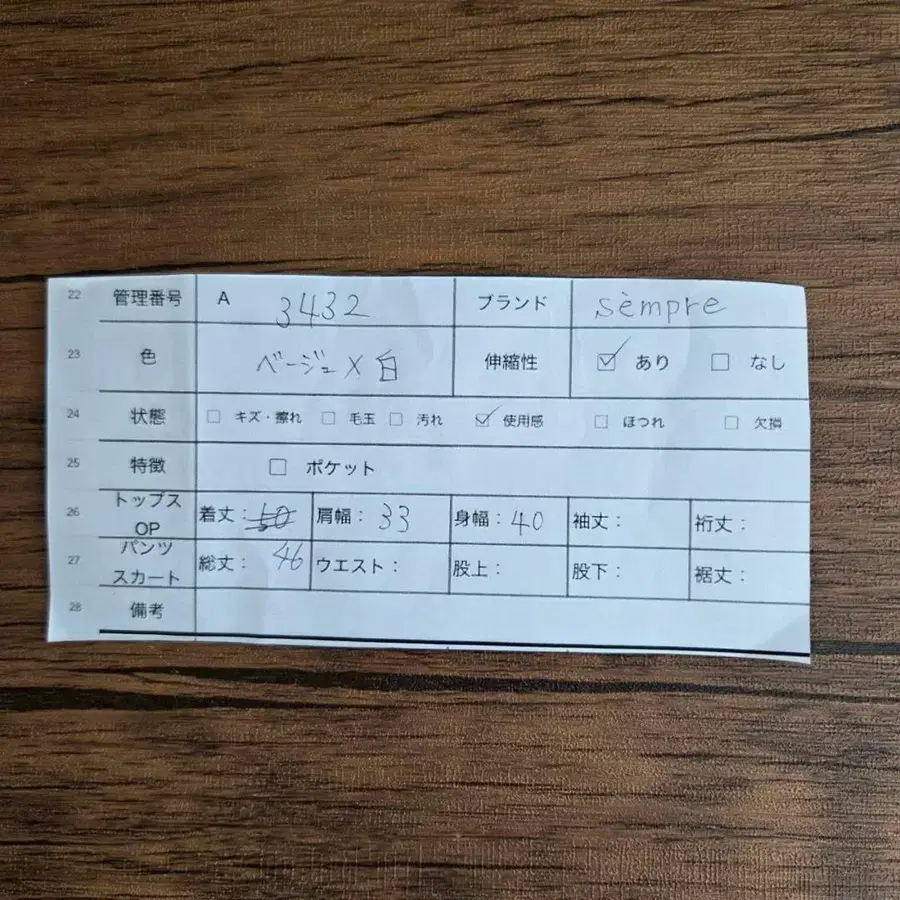 22 管理番号 A 3432 ブランド sèmpre
23 色 ベージュ×白 伸縮性 ☑ あり ☐ なし
24 状態 ☐ キズ・擦れ ☐ 毛玉 ☐ 汚れ ☑ 使用感 ☐ ほつれ ☐ 欠損
25 特徴 ☐ ポケット
26 トップス OP 着丈: 50 肩幅: 33 身幅: 40 袖丈: 裄丈:
27 パンツ スカート 総丈: 46 ウエスト: 股上: 股下: 裾丈:
28 備考